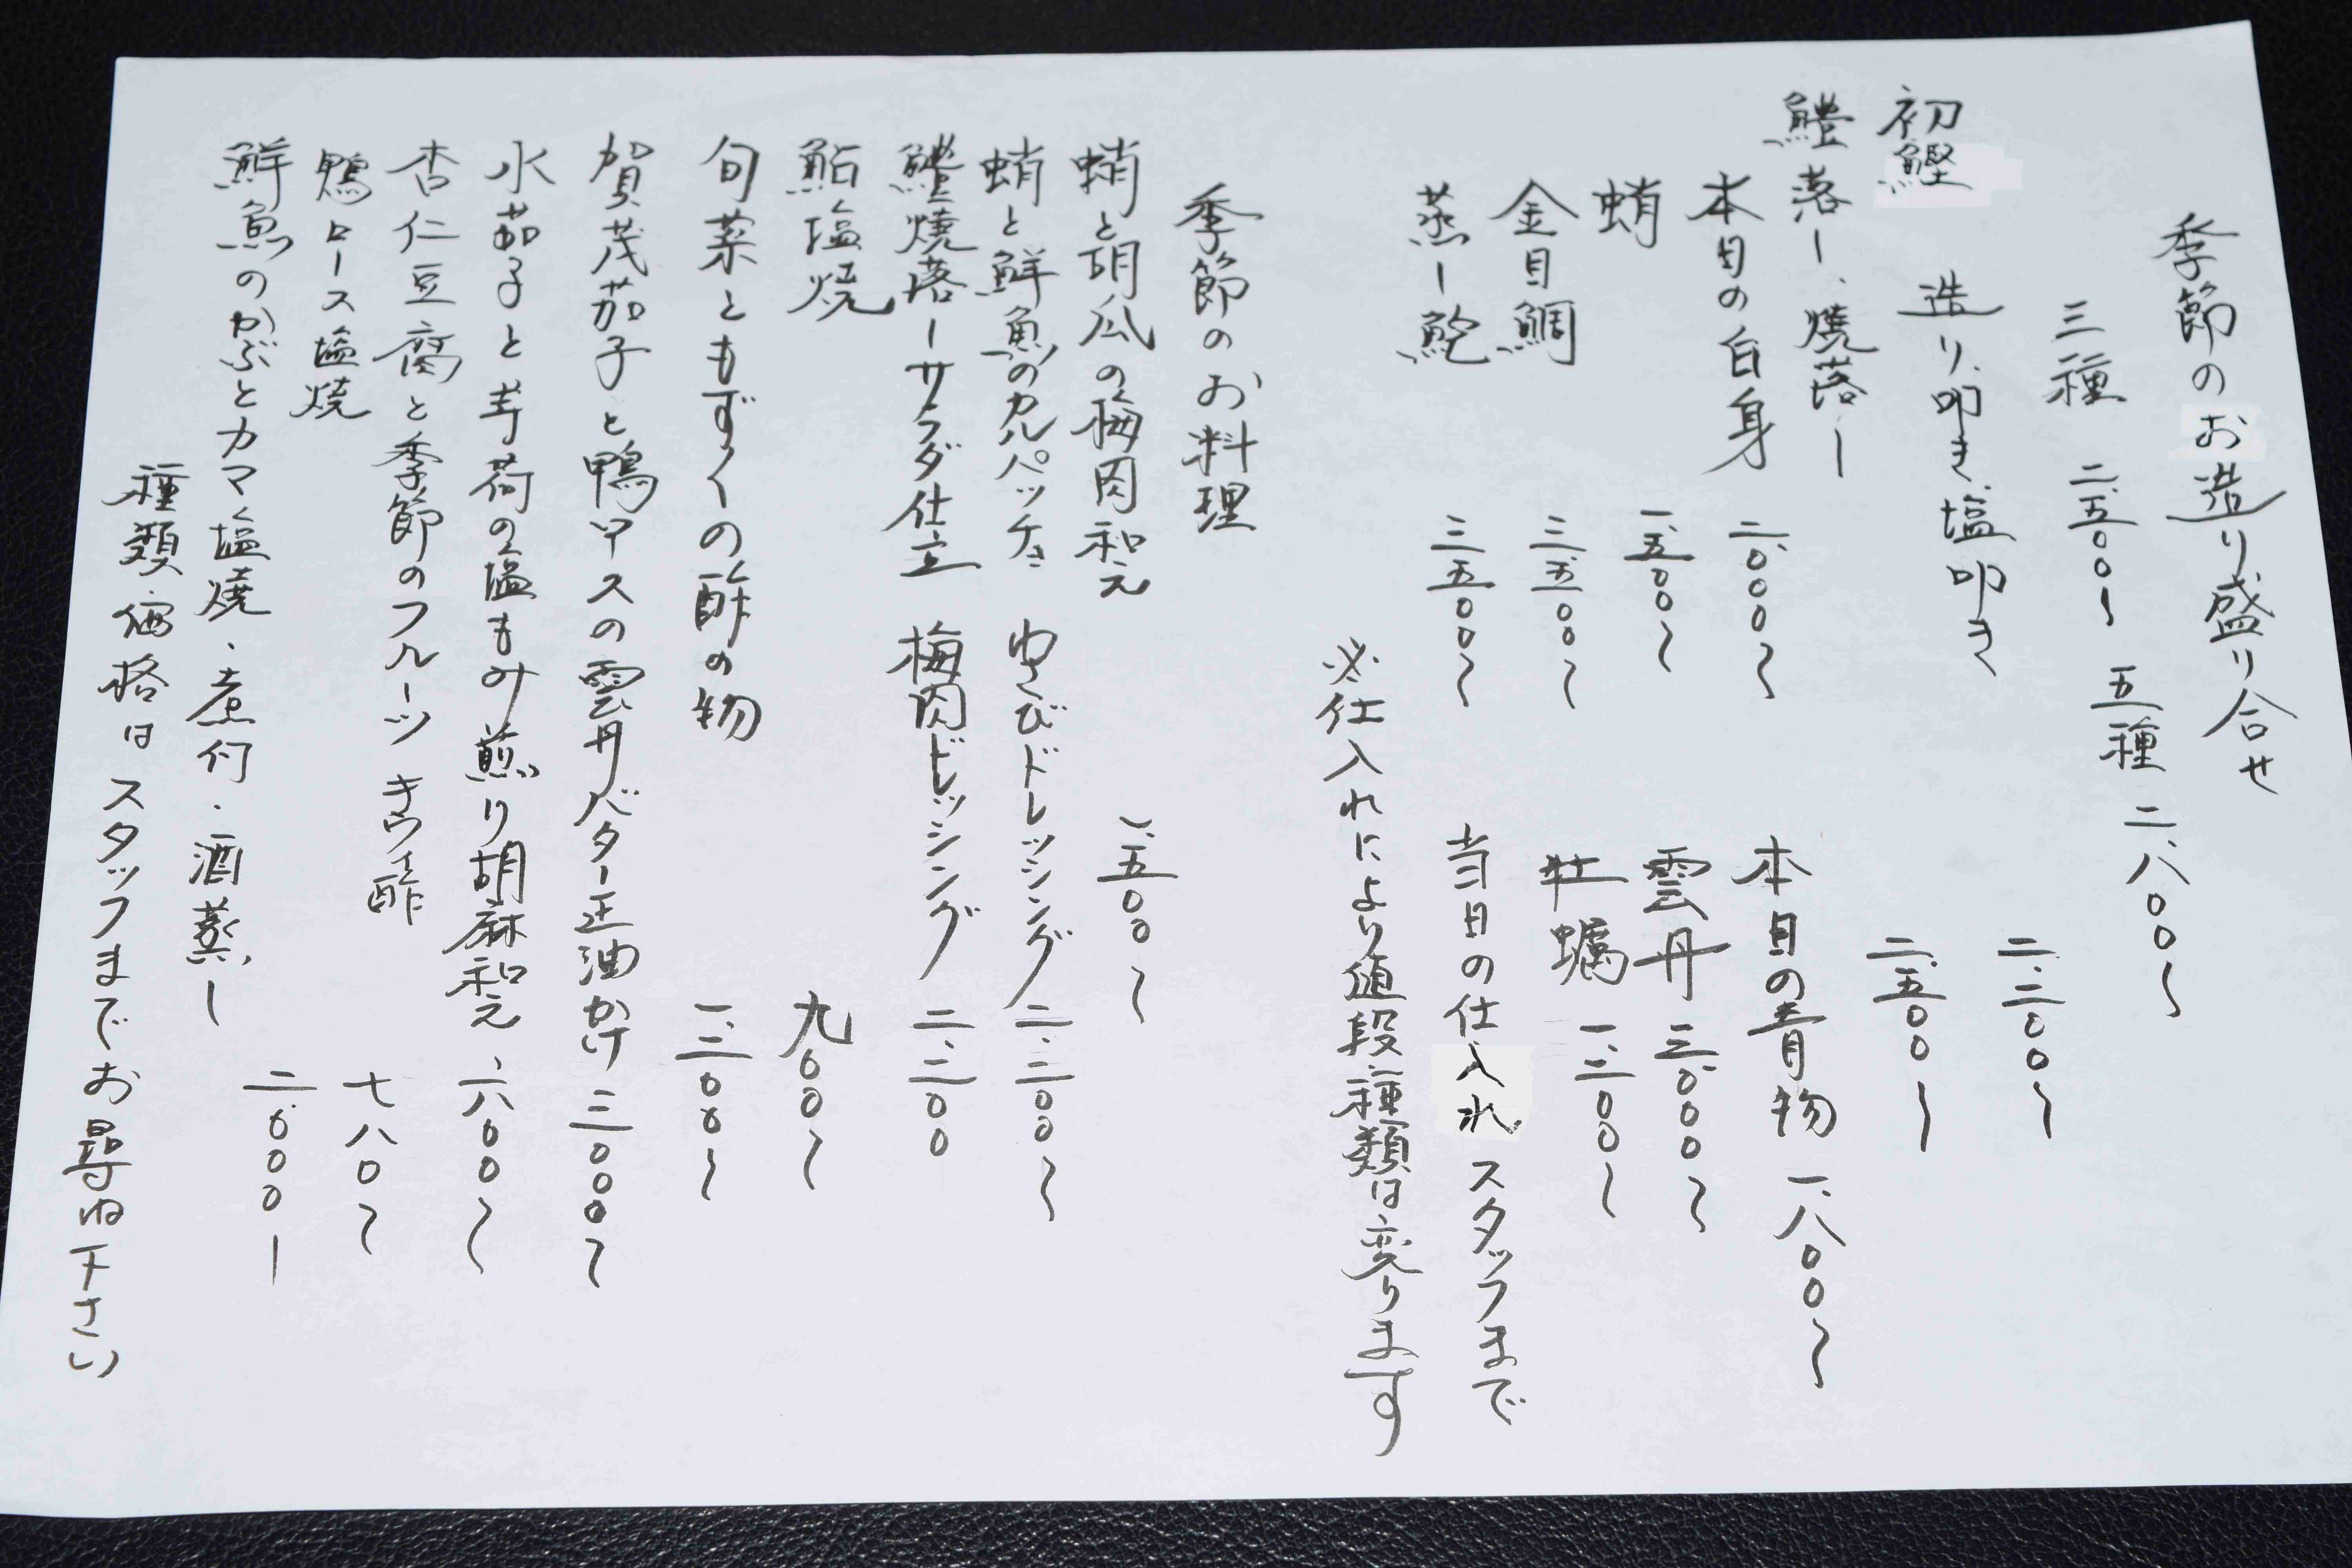 季節のお造り盛り合せ
三種 二、五〇〇〜 五種 二、八〇〇〜
初鰹 造り、叩き、塩叩き 二、二〇〇〜
鱧落し、焼落し 二、五〇〇〜
本日の白身 二、〇〇〇〜 本日の青物 一、八〇〇〜
蛸 一、五〇〇〜 雲丹 三、〇〇〇〜
金目鯛 三、五〇〇〜 牡蠣 一、二〇〇〜
蒸し鮑 三、五〇〇〜 当日の仕入れスタッフまで
※仕入れにより値段、種類は変ります
季節のお料理
蛸と胡瓜の梅肉和え 一、五〇〇〜
蛸と鮮魚のカルパッチョ わさびドレッシング 二、二〇〇〜
鱧焼落しサラダ仕立 梅肉ドレッシング 二、二〇〇
鮎塩焼 九〇〇〜
旬菜ともずくの酢の物 一、二〇〇〜
賀茂茄子と鴨ロースの雲丹バター正油かけ 三、〇〇〇〜
水茄子と茗荷の塩もみ煎り胡麻和え 一、六〇〇〜
杏仁豆腐と季節のフルーツ キウイ酢 七八〇〜
鴨ロース塩焼 二、〇〇〇〜
鮮魚のかぶとカマ塩焼・煮付・酒蒸し
種類、価格はスタッフまでお尋ね下さい